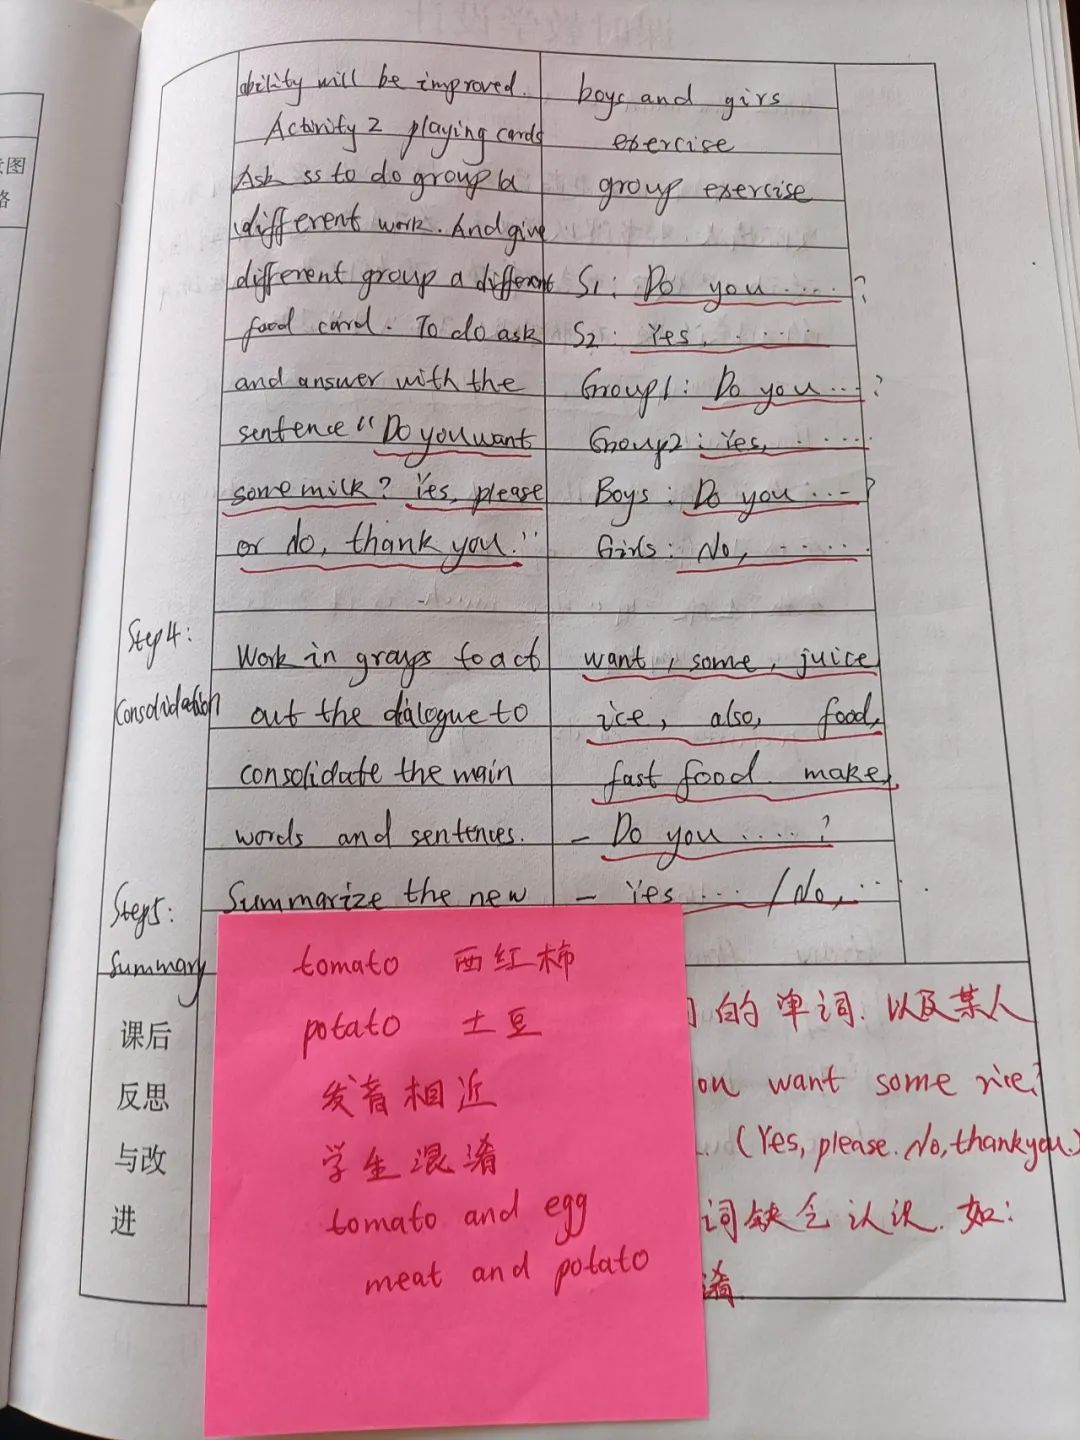 课时教学设计
意图
略
ability will be improved.
Activity 2 playing cards
Ask ss to do group a
different work. And give
different group a different
food card. To do ask
and answer with the
sentence "Do you want
some milk? Yes, please
or do, thank you."
boys and girs
exercise
group exercise
S1: Do you ....?
S2: Yes, .....
Group1: Do you ...?
Group2: Yes, .....
Boys: Do you ...?
Girls: No, .....
Step4:
Consolidation
Work in groups to act
out the dialogue to
consolidate the main
words and sentences.
want, some, juice
rice, also, food,
fast food. make,
- Do you ....?
- Yes ... / No, ...
Step5:
Summary
Summarize the new
tomato 西红柿
potato 土豆
发音相近
学生混淆
tomato and egg
meat and potato
课后
反思
与改
进
的单词. 以及某人
ou want some rice?
(Yes, please. No, thank you.)
词缺乏认识. 如:
淆.